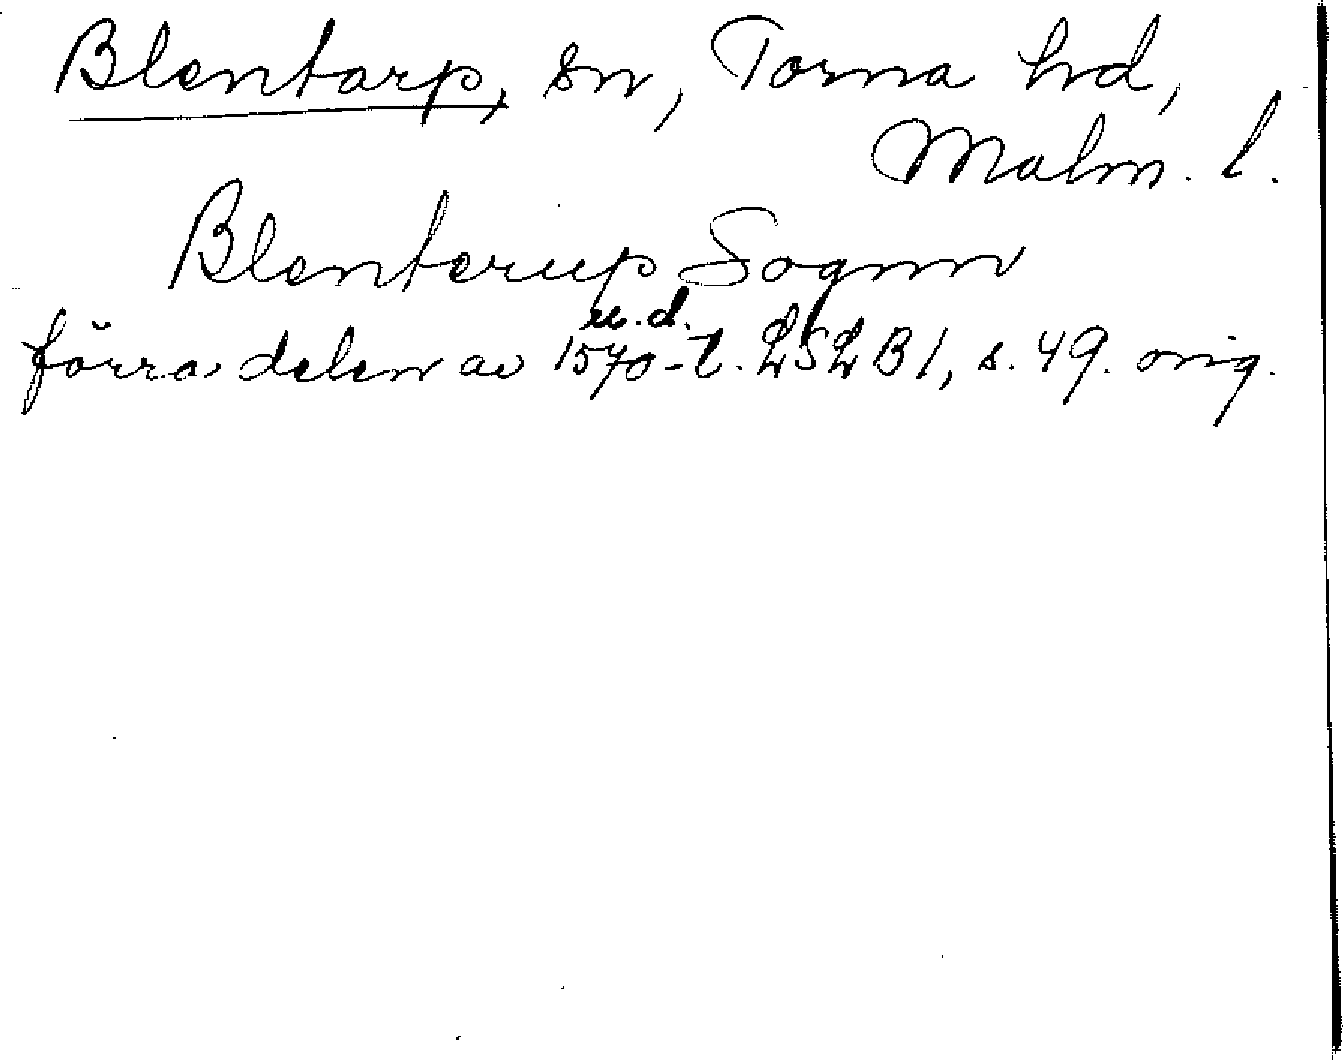 Blentarp, sn, Torna hd,
Malm. l.
Blenterup Sognn
u. d.
förra delen av 1570-t. LSLB1, s. 49. orig.